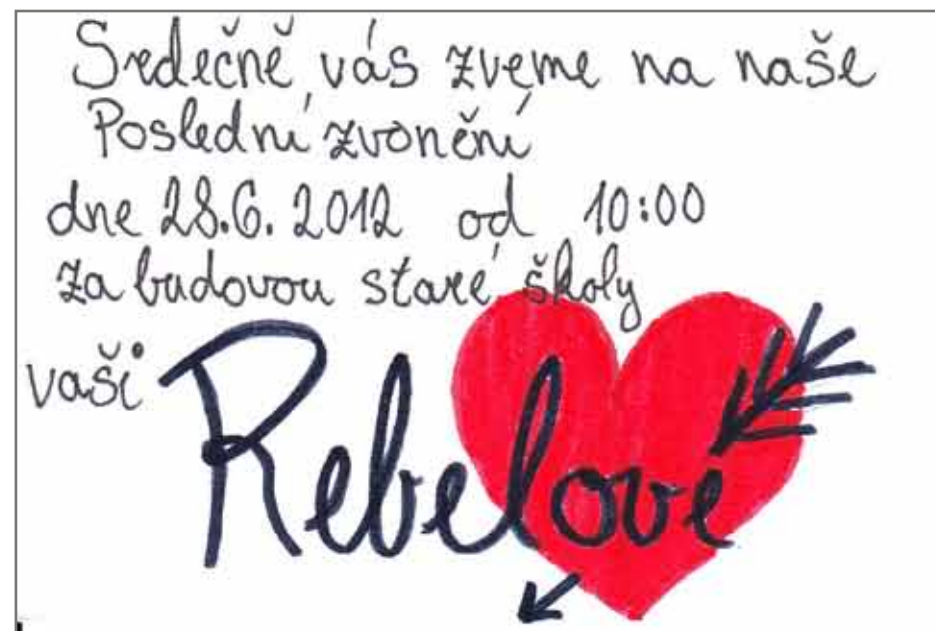 Srdečně vás zveme na naše
Poslední zvonění
dne 28.6.2012 od 10:00
za budovou staré školy
vaši Rebelové